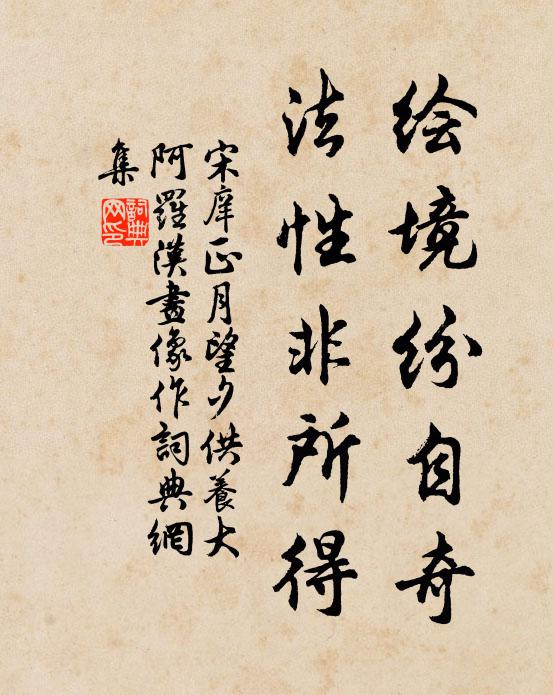 绘境纷自奇
法性非所得
宋庠正月望夕供養大
阿羅漢畫像作詞典網
集
詞典
网印